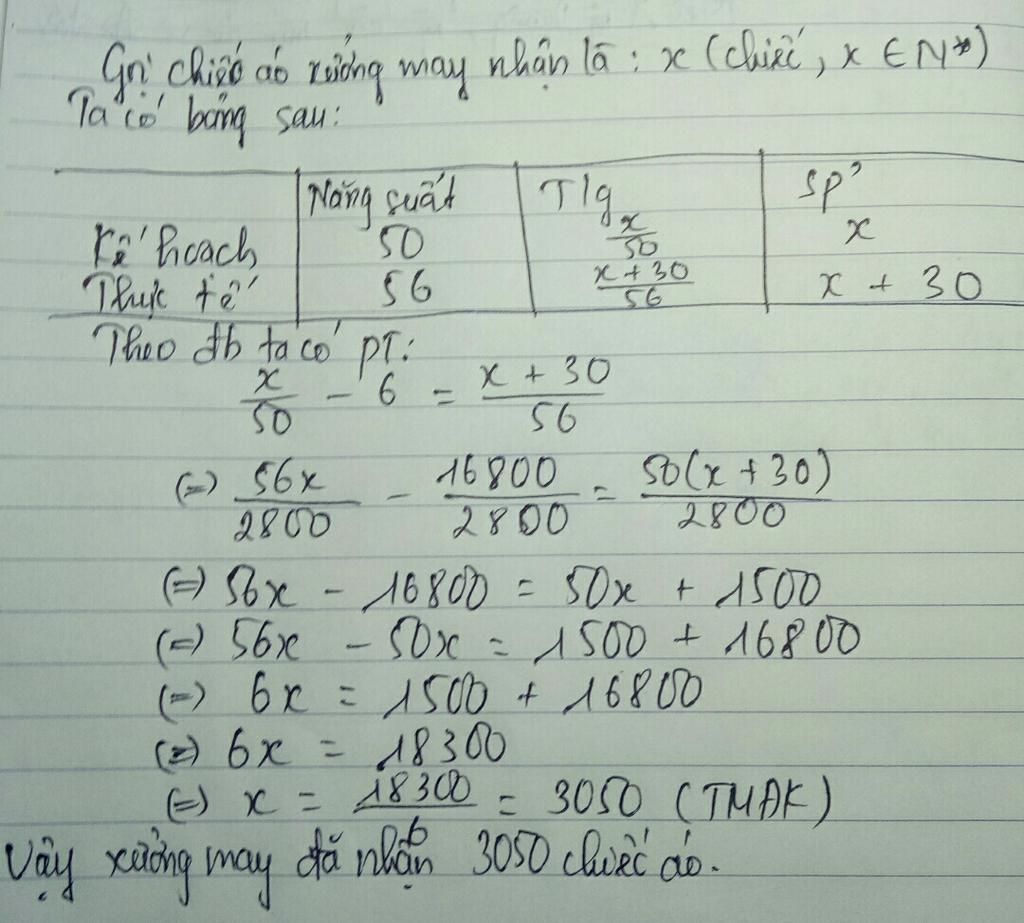 Gọi chiếc áo xưởng may nhận là : x (chiếc, x ∈ N*)
Ta có bảng sau:
Năng suất | T/g | Sp'
Kế hoạch | 50 | x/50 | x
Thực tế | 56 | (x + 30)/56 | x + 30
Theo đb ta có PT:
x/50 - 6 = (x + 30)/56
(=) 56x/2800 - 16800/2800 = 50(x + 30)/2800
(=) 56x - 16800 = 50x + 1500
(=) 56x - 50x = 1500 + 16800
(=) 6x = 1500 + 16800
(=) 6x = 18300
(=) x = 18300/6 = 3050 (TMĐK)
Vậy xưởng may đã nhận 3050 chiếc áo.